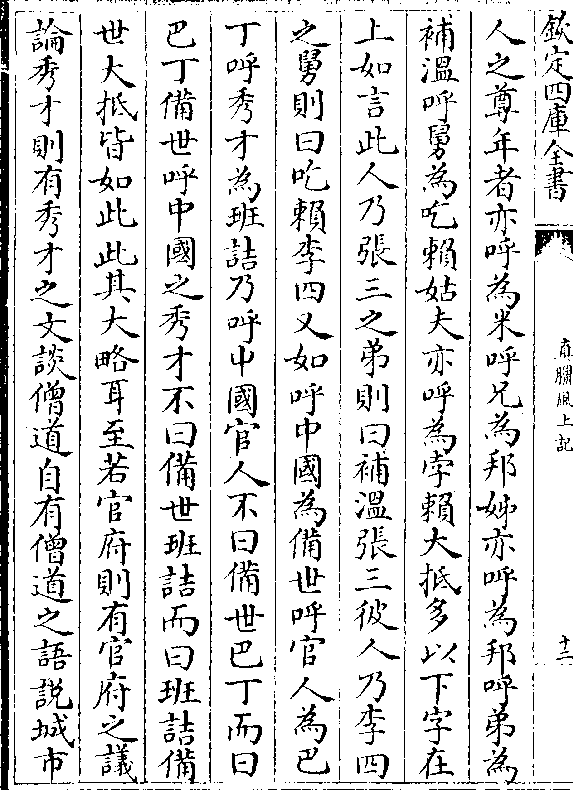 欽定四庫全書
真臘風土記
十二
人之尊年者亦呼為米呼兄為邦姊亦呼為邦呼弟為
補溫呼舅為吃賴姑夫亦呼為孛賴大抵多以下字在
上如言此人乃張三之弟則曰補溫張三彼人乃李四
之舅則曰吃賴李四又如呼中國為備世呼官人為巴
丁呼秀才為班詰乃呼中國官人不曰備世巴丁而曰
巴丁備世呼中國之秀才不曰備世班詰而曰班詰備
世大抵皆如此此其大略耳至若官府則有官府之議
論秀才則有秀才之文談僧道自有僧道之語説城市